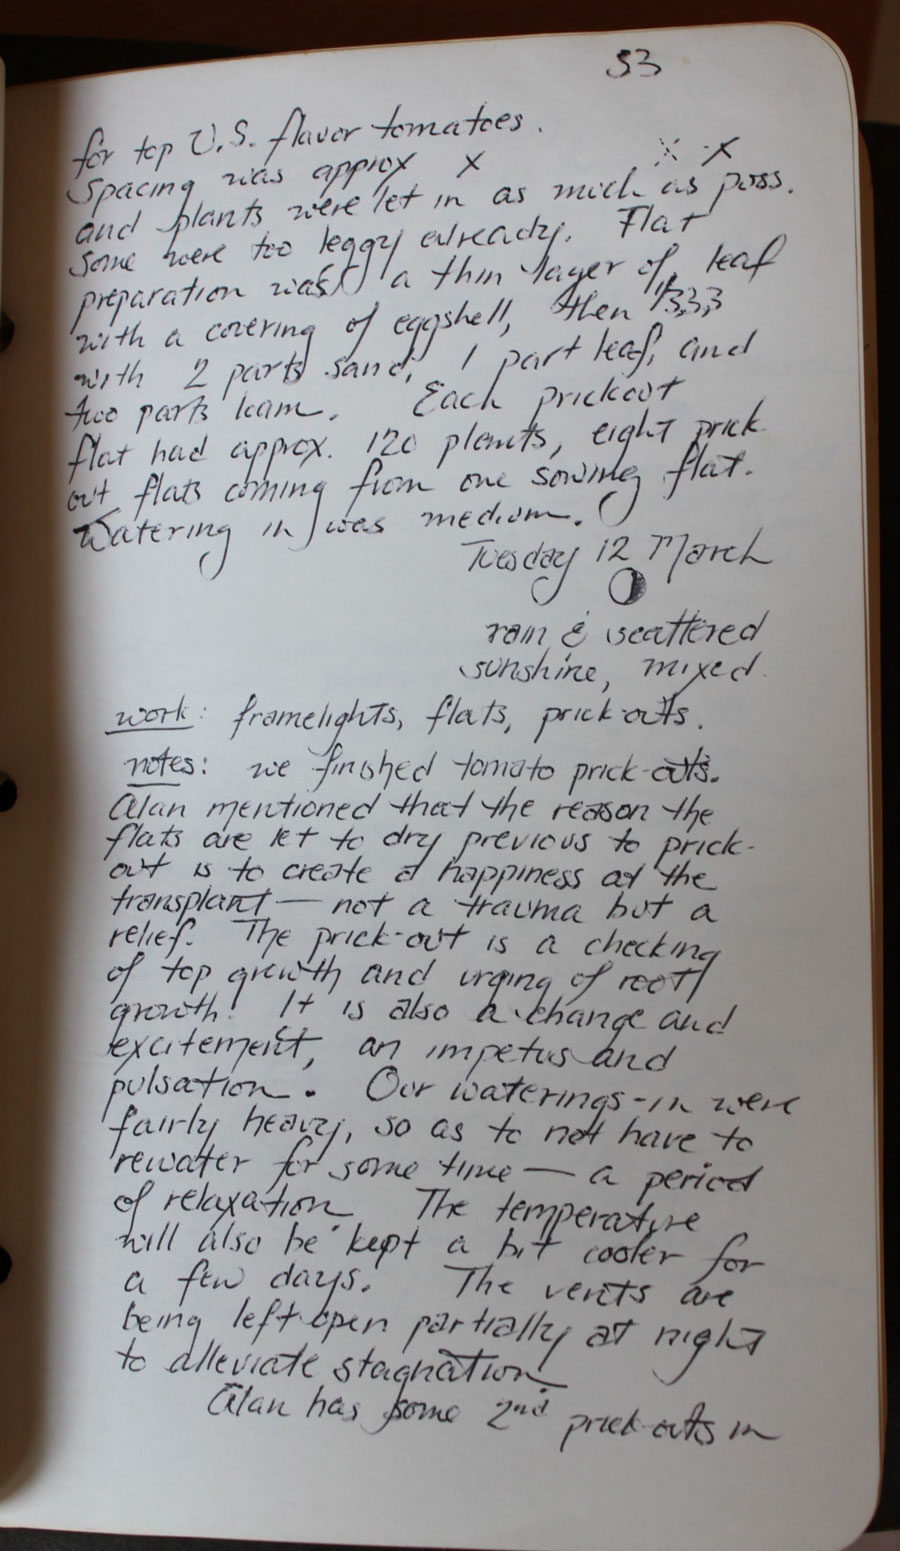 53
for top U.S. flavor tomatoes.
Spacing was approx x x x
and plants were let in as much as poss.
some were too leggy already. Flat
preparation was a thin layer of leaf
with a covering of eggshell, then
with 2 parts sand, 1 part leaf, and
two parts loam. Each prickout
flat had approx. 120 plants, eight prick
out flats coming from one sowing flat.
Watering in was medium.
Tuesday 12 March
rain & scattered
sunshine, mixed.
work: framelights, flats, prick-outs.
notes: we finished tomato prick-outs.
Alan mentioned that the reason the
flats are let to dry previous to prick-
out is to create a happiness at the
transplant — not a trauma but a
relief. The prick-out is a checking
of top growth and urging of root
growth! It is also a change and
excitement, an impetus and
pulsation. Our waterings-in were
fairly heavy, so as to not have to
rewater for some time — a period
of relaxation. The temperature
will also be kept a bit cooler for
a few days. The vents are
being left open partially at night
to alleviate stagnation.
Alan has some 2nd prick-outs in